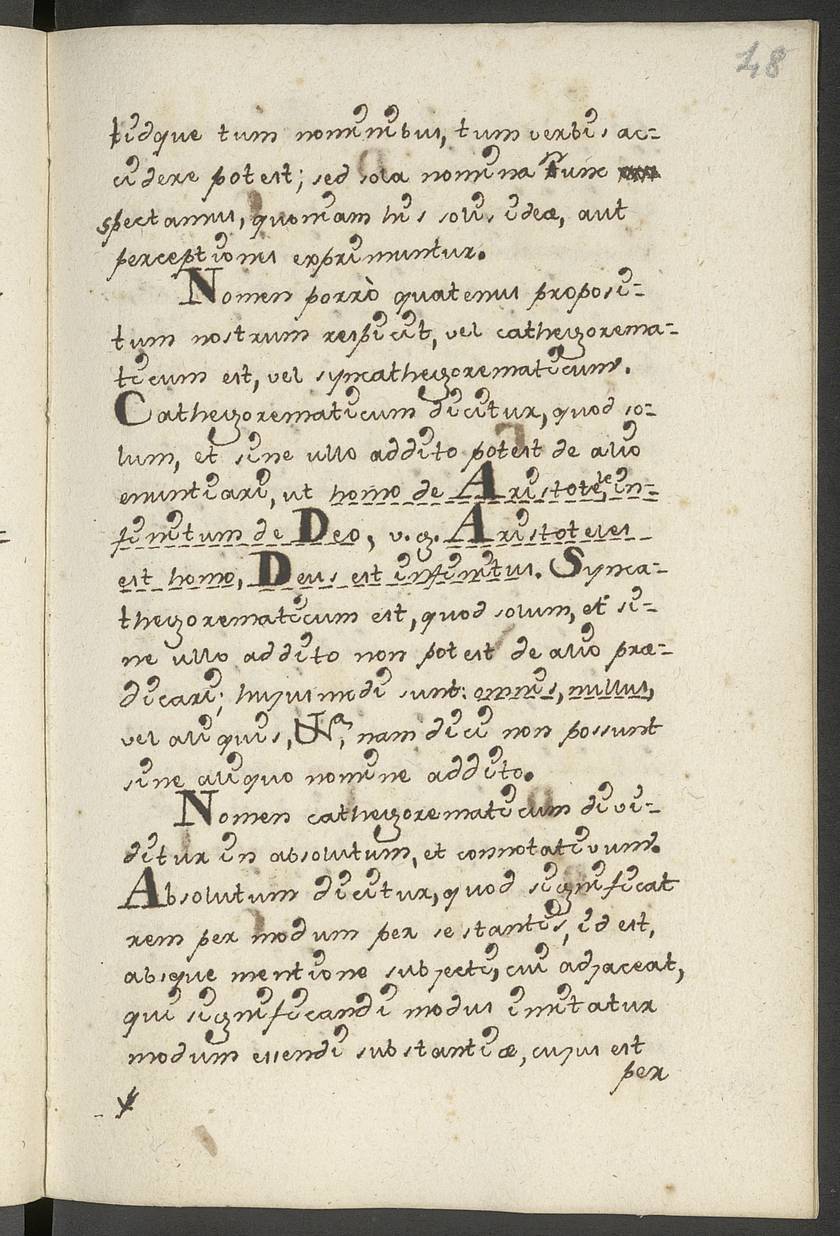 48
tidque tum nominibus, tum verbis ac=
cidere potest; sed sola nomina nunc
spectamus, quoniam his solis ideæ, aut
perceptiones exprimuntur.
Nomen porrò quatenus proposi=
tum nostrum respicit, vel cathegorema=
ticum est, vel syncathegorematicum.
Cathegorematicum dicitur, quod so=
lum, et sine ullo addito potest de alio
enuntiari, ut homo de Aristotele, in=
finitum de Deo, v.g. Aristoteles
est homo, Deus est infinitus. Synca=
thegorematicum est, quod solum, et si=
ne ullo addito non potest de alio præ=
dicari; hujusmodi sunt: omnis, nullus,
vel aliquis, nam dici non possunt
sine aliquo nomine addito.
Nomen cathegorematicum divi=
ditur in absolutum, et connotativum.
Absolutum dicitur, quod significat
rem per modum per se stantis, id est,
absque mentione subjecti, cui adjaceat,
qui significandi modus imitatur
modum essendi substantiæ, cujus est
per